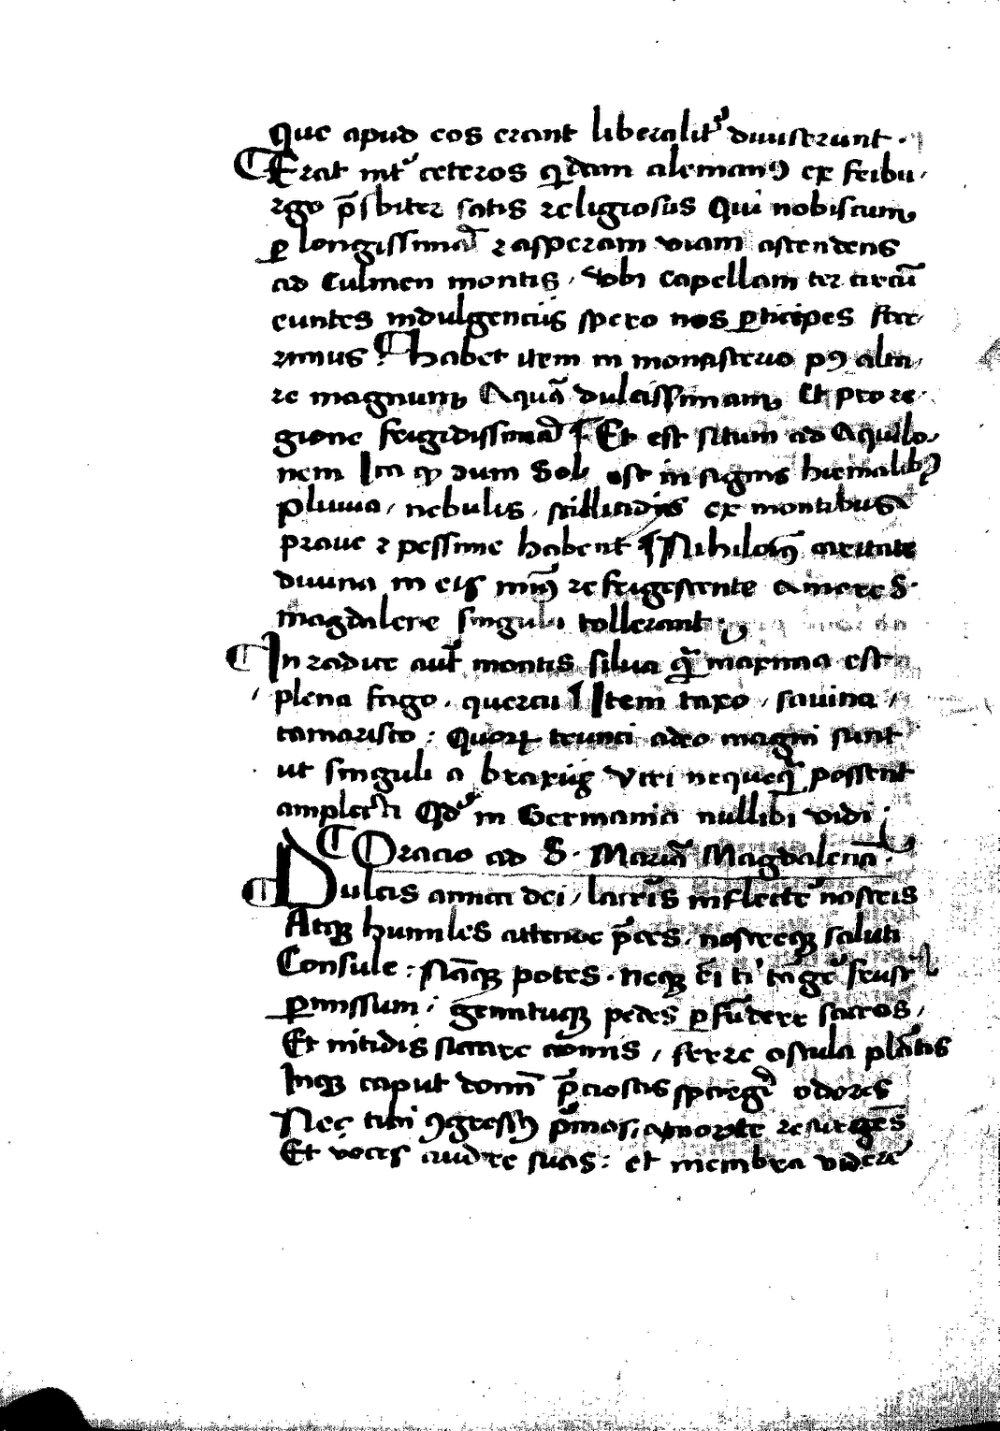 Que apud eos erant liberalit᷑ diuiserunt .
Erat int᷑ ceteros q̇dam alemanꝰ ex freibu-
rgo p̄sbiter satis religiosus Qui nobiscum
ꝑ longissimā ⁊ asperam viam ascendens
ad Culmen montis , vbi Capellam ter circū
euntes indulgencijs spero nos ꝑticipes fue-
rimus . Habet item in monasterio pꝰ alta-
re magnum Aquā dulcissimam Et pro re-
gione frigidissimā Et est situm ad Aquilo-
nem Ita ꝙ dum Sol est in signis hiemalibꝰ
pluuia , nebulis , stillicidijs ex montibus
praue ⁊ pessime habent Nihilomīꝰ caritate
diuina in eis nimiū refrigescente Amore S.
magdalene singuli tollerant .
In radice aut̄ montis silua q̄ maxima est
plena fago , quercu Item taxo , sauina ,
tamarisco : Quoꝝ trunci adeo magni sunt
ut singuli a braxijs Viri nequeq̄ possent
amplecti Qd̄ in Germania nullibi vidi .
Oracio ad S. Mariā Magdalenā .
Dulcis amica dei , lacrīs inflectere nostris
Atqꝫ humiles attende p̄ces , nostreqꝫ saluti
Consule : Nāqꝫ potes . neqꝫ em̄ ti' tāgē frust᷑
ꝑmissum , gemituqꝫ pedes ꝑfūdere sacros ,
Et nitidis siccare comis , ferre oscula plātis
Inqꝫ caput domī p̄ciosos sp̄arge᷑ odores
Nec tibi ꝯgressꝰ p̄mos , a morte resurgēs
Et voces audire suas : et membra videre